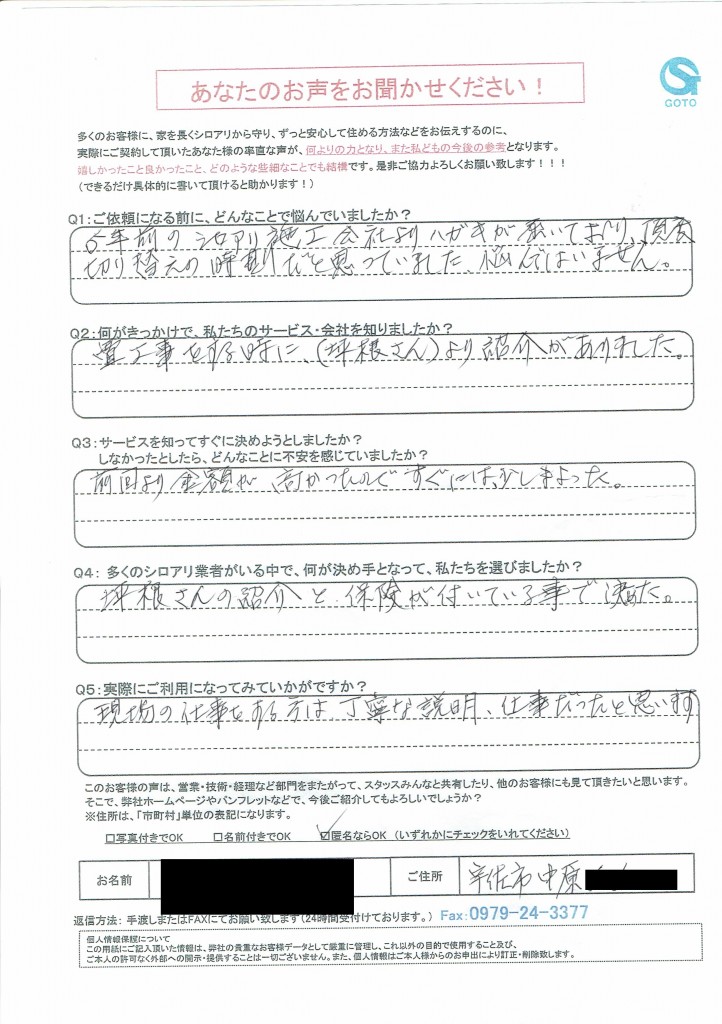 GOTO
あなたのお声をお聞かせください！
多くのお客様に、家を長くシロアリから守り、ずっと安心して住める方法などをお伝えするのに、
実際にご契約して頂いたあなた様の率直な声が、何よりの力となり、また私どもの今後の参考となります。
嬉しかったこと良かったこと、どのような些細なことでも結構です。是非ご協力よろしくお願い致します！！！
（できるだけ具体的に書いて頂けると助かります！）
Q1：ご依頼になる前に、どんなことで悩んでいましたか？
5年前のシロアリ施工会社よりハガキが届いており、
切り替えの時期だと思っていました、悩んではいません。
Q2：何がきっかけで、私たちのサービス・会社を知りましたか？
畳工事をする時に、（坪根さん）より紹介がありました。
Q3：サービスを知ってすぐに決めようとしましたか？
しなかったとしたら、どんなことに不安を感じていましたか？
前回より金額が高かったのですぐには少しまよった。
Q4： 多くのシロアリ業者がいる中で、何が決め手となって、私たちを選びましたか？
坪根さんの紹介と保険が付いている事で決めた。
Q5：実際にご利用になってみていかがですか？
現場の仕事をする方は丁寧な説明、仕事だったと思います
このお客様の声は、営業・技術・経理など部門をまたがって、スタッスみんなと共有したり、他のお客様にも見て頂きたいと思います。
そこで、弊社ホームページやパンフレットなどで、今後ご紹介してもよろしいでしょうか？
※住所は、「市町村」単位の表記になります。
□写真付きでOK □名前付きでOK ☑匿名ならOK （いずれかにチェックをいれてください）
お名前 ご住所 宇佐市中原
返信方法： 手渡しまたはFAXにてお願い致します（24時間受付けております。） Fax：0979-24-3377
個人情報保護について
この用紙にご記入頂いた情報は、弊社の貴重なお客様データとして厳重に管理し、これ以外の目的で使用すること及び、
ご本人の許可なく外部への開示・提供することは一切ございません。また、個人情報はご本人様からのお申出により訂正・削除致します。